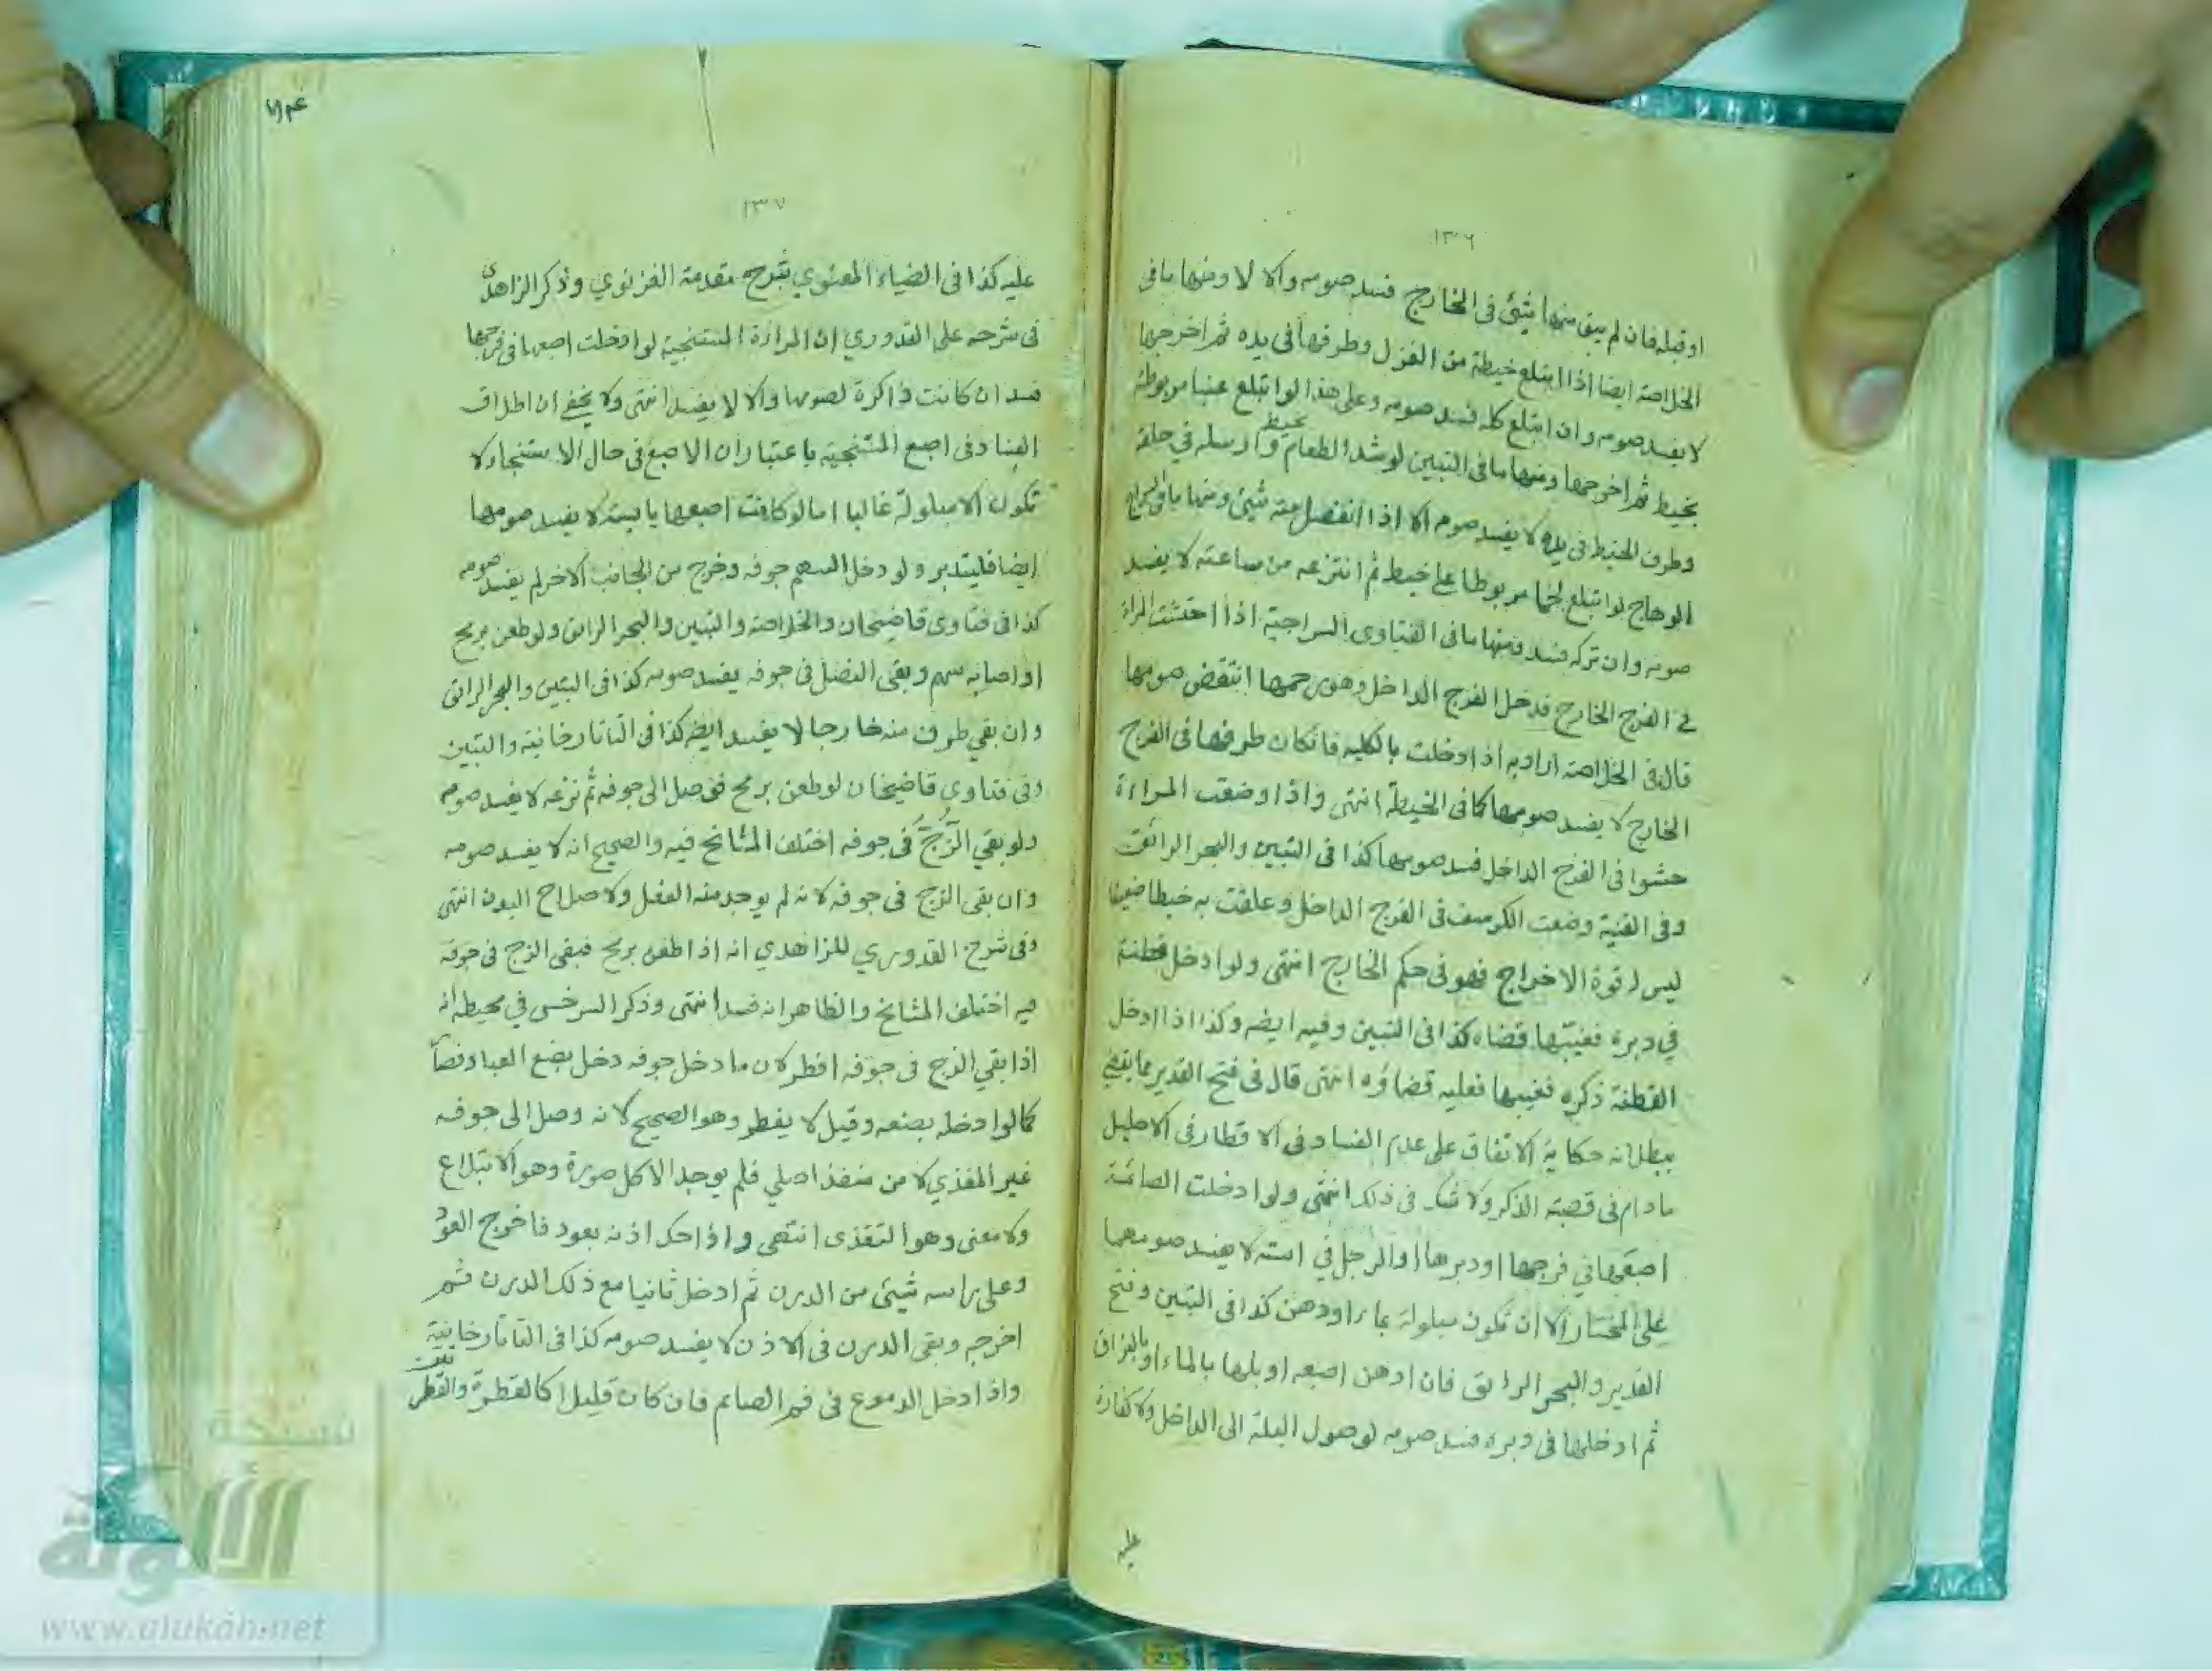 ١٣٦
او قبله فان لم يبق منها شئ فى الخارج فسد صومه والا لا ومنها ما فى
الخلاصة ايضا اذا ابتلع خيطة من الغزل وطرفها فى يده ثم اخرجها
لا يفسد صومه وان ابتلع كله فسد صومه وعلى هذا لو ابتلع عنبا مربوطة
بخيط ثم اخرجها ومنها ما فى التبيين لو شد الطعام بخيط وارسله في حلقه
وطرف الخيط فى يده لا يفسد صومه الا اذا انفصل منه شئ ومنها ما فى السراج
الوهاج لو ابتلع لحما مربوطا على خيط ثم انتزعه من ساعته لا يفسد
صومه وان تركه فسد ومنها ما فى الفتاوى السراجية اذا احتشت المراة
في الفرج الخارج فدخل الفرج الداخل وهو رحمها انتقض صومها
قال فى الخلاصة اراد به اذا دخلت بالكلية فان كان طرفها فى الفرج
الخارج لا يفسد صومها كما فى الخيطة انتهى واذا وضعت المراءة
حشوا فى الفرج الداخل فسد صومها كذا فى التبيين والبحر الرائق
وفى القنية وضعت الكرسف فى الفرج الداخل وعلقت به خيطا ضعيفا
ليس له قوة الاخراج فهو فى حكم الخارج انتهى ولو ادخل قطنة
في دبره فغيبها قضاه كذا فى التبيين وفيه ايضه وكذا اذا ادخل
القطنة ذكره فغيبها فعليه قضاؤه انتهى قال فى فتح القدير مما يقضي
ببطلانه حكاية الاتفاق على عدم الفساد فى الاقطار فى الاحليل
ما دام فى قصبة الذكر ولا شك فى ذلك انتهى ولو ادخلت الصائمة
اصبعها في فرجها او دبرها او الرجل في استه لا يفسد صومهما
على المختار الا ان تكون مبلولة بماء او دهن كذا فى التبيين وفتح
القدير والبحر الرائق فان ادهن اصبعه او بلها بالماء او بالبزاق
ثم ادخلها فى دبره فسد صومه لوصول البلة الى الداخل ولا كفارة
عليه
١٣٧
عليه كذا فى الضياء المعنوي شرح مقدمة الغزنوي وذكر الزاهدى
فى شرحه على القدوري ان المراءة المستنجية لو ادخلت اصبعها فى فرجها
فسد ان كانت ذاكرة لصومها والا لا يفسد انتهى ولا يخفى ان اطلاق
الفساد فى اصبع المستنجية باعتبار ان الاصبع فى حال الاستنجاء لا
تكون الا مبلولة غالبا اما لو كانت اصبعها يابسة لا يفسد صومها
ايضا فليتدبر ولو دخل السهم جوفه وخرج من الجانب الاخر لم يفسد صومه
كذا فى فتاوى قاضيخان والخلاصة والتبيين والبحر الرائق ولو طعن برمح
او اصابه سهم وبقى النصل فى جوفه يفسد صومه كذا فى التبيين والبحر الرائق
وان بقي طرف منه خارجا لا يفسد ايضه كذا فى التاتارخانية والتبيين
وفى فتاوى قاضيخان لو طعن برمح فوصل الى جوفه ثم نزعه لا يفسد صومه
ولو بقي الزُّجّ فى جوفه اختلف المشائخ فيه والصحيح انه لا يفسد صومه
وان بقى الزج فى جوفه لانه لم يوجد منه الفعل ولا صلاح البدن انتهى
وفى شرح القدوري للزاهدي انه اذا طعن برمح فبقى الزج فى جوفه
فيه اختلف المشائخ والظاهر انه فسد انتهى وذكر السرخسى في محيطه انه
اذا بقي الزج فى جوفه افطر لان ما دخل جوفه دخل بصنع العباد فصار
كما لو ادخله بصنعه وقيل لا يفطر وهو الصحيح لانه وصل الى جوفه
غير المغذي لا من منفذ اصلي فلم يوجد الاكل صورة وهو الابتلاع
ولا معنى وهو التغذى انتهى واذا حك اذنه بعود فاخرج العود
وعلى راسه شيئ من الدرن ثم ادخل ثانيا مع ذلك الدرن ثم
اخرجه وبقى الدرن فى الاذن لا يفسد صومه كذا فى التاتارخانية
واذا دخل الدموع فى فم الصائم فان كان قليلا كالقطرة والقطرتين
نسخة
الألوكة
www.alukah.net